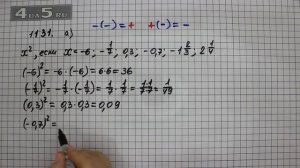 4ДУ5.RU
1131. а) -(-)=+ +(-)=-
x², если x=-6; -1/7; 0,3; -0,7; -1 2/3; 2 1/4
(-6)² = -6·(-6) = 6·6 = 36
(-1/7)² = -1/7·(-1/7) = 1/7·1/7 = 1·1/7·7 = 1/49
(0,3)² = 0,3·0,3 = 0,09
(-0,7)² =